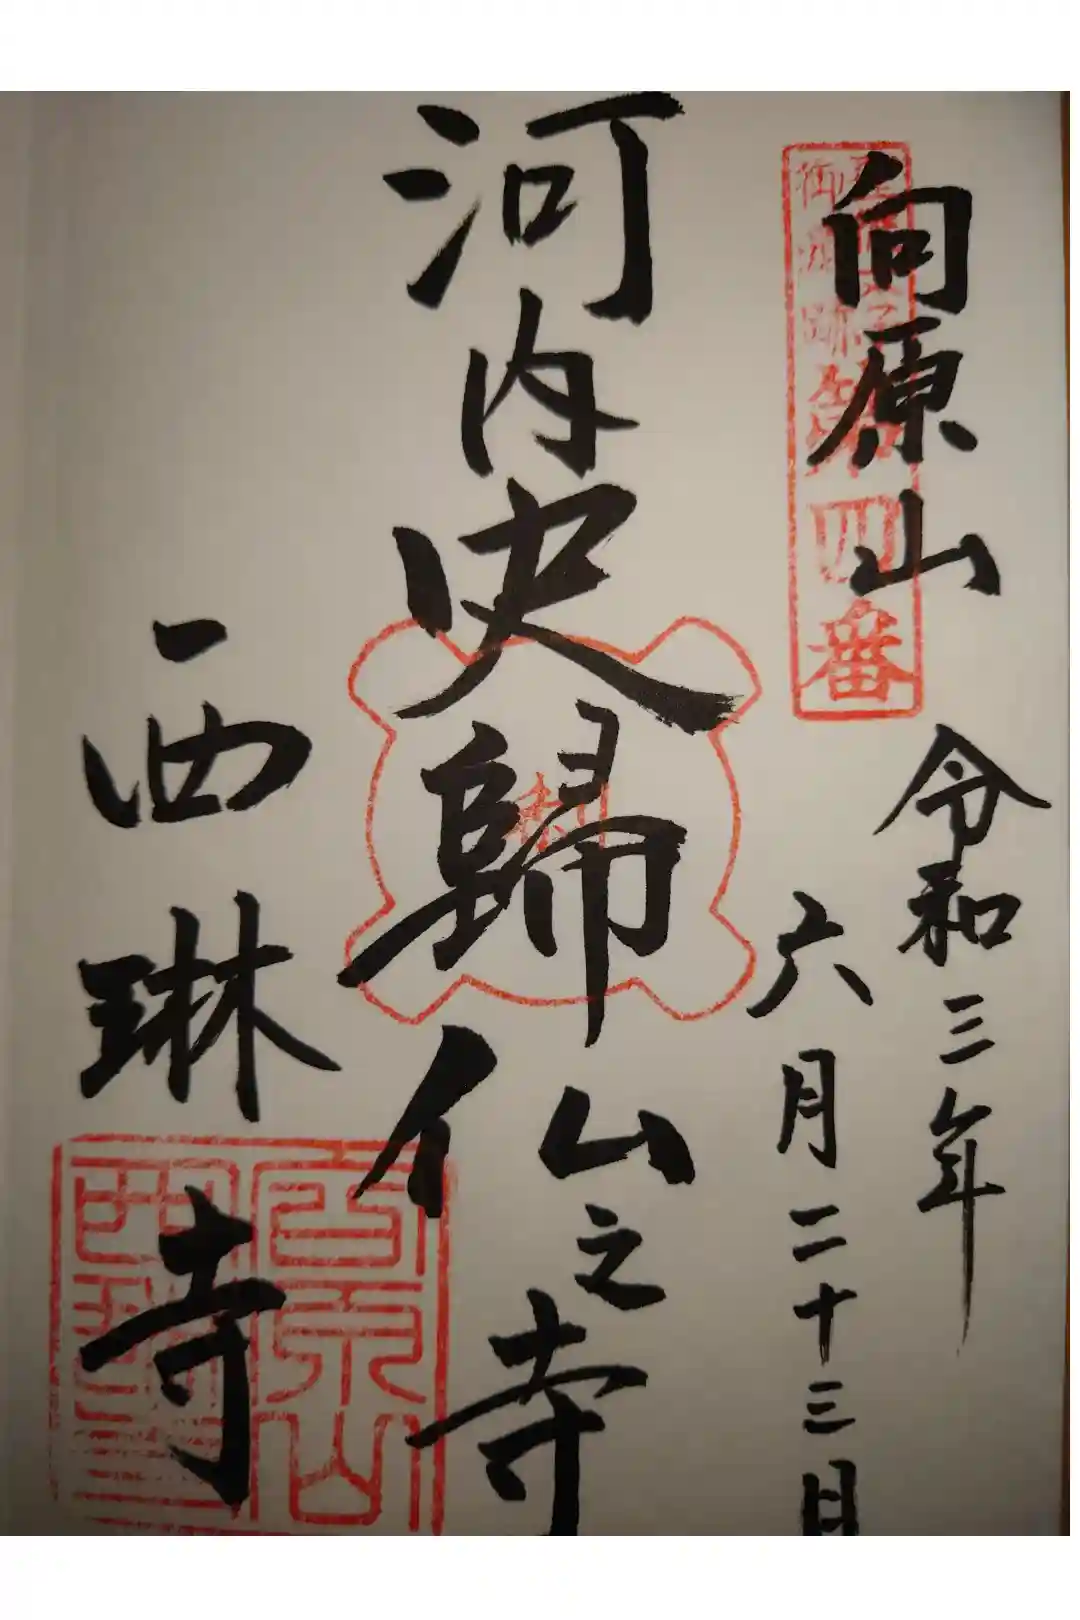 向原山
御遺跡
第四番
令和三年
六月二十三日
河内史歸仏之寺
西琳寺
向原山
西琳寺